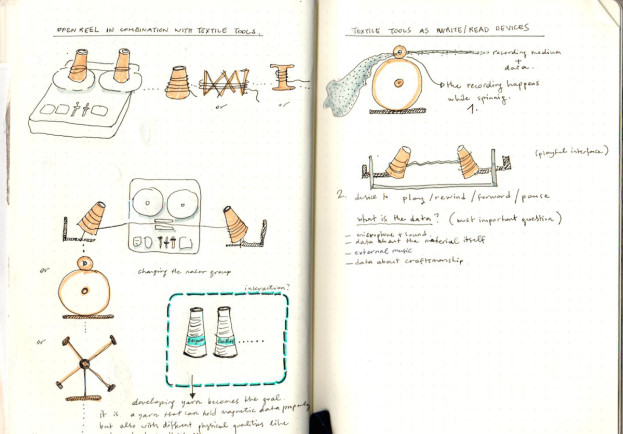 OPEN REEL IN COMBINATION WITH TEXTILE TOOLS.
or
or
or
changing the motor group
or
interaction?
developing yarn becomes the goal.
it is a yarn that can hold magnetic data property
but also with different physical qualities like
TEXTILE TOOLS AS WRITE/READ DEVICES
recording medium
+
data.
the recording happens
while spinning.
1.
(playful interface)
2. device to play/rewind/forward/pause
what is the data? (most important question)
- microphone + sound.
- data about the material itself
- external music
- data about craftsmanship